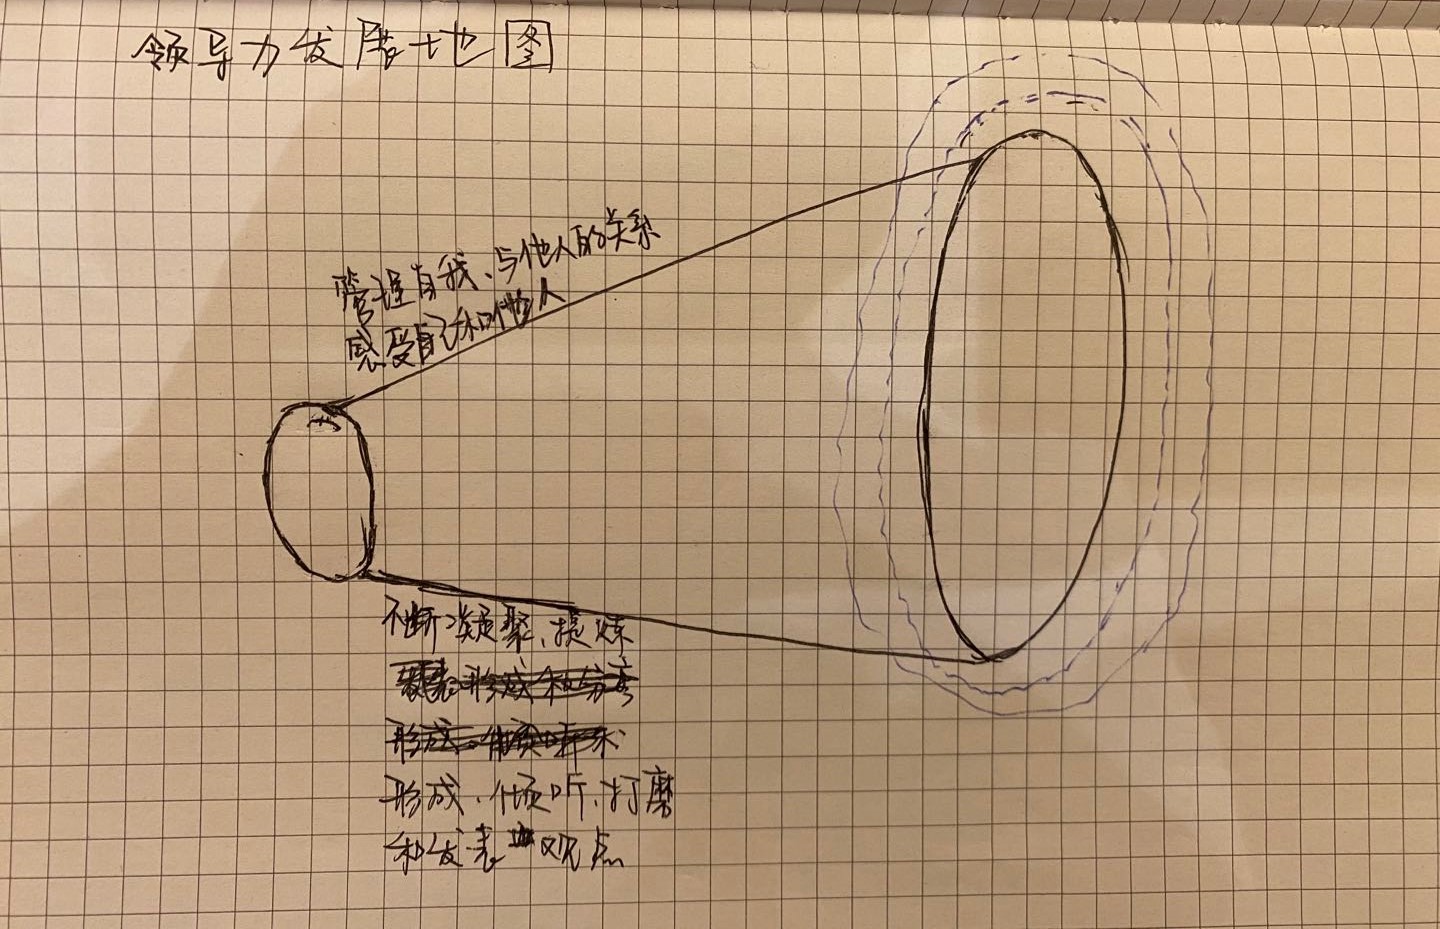 领导力发展地图
管理自我、与他人的关系
感受自己和他人
不断凝聚、提炼
形成、倾听、打磨
和发表 观点